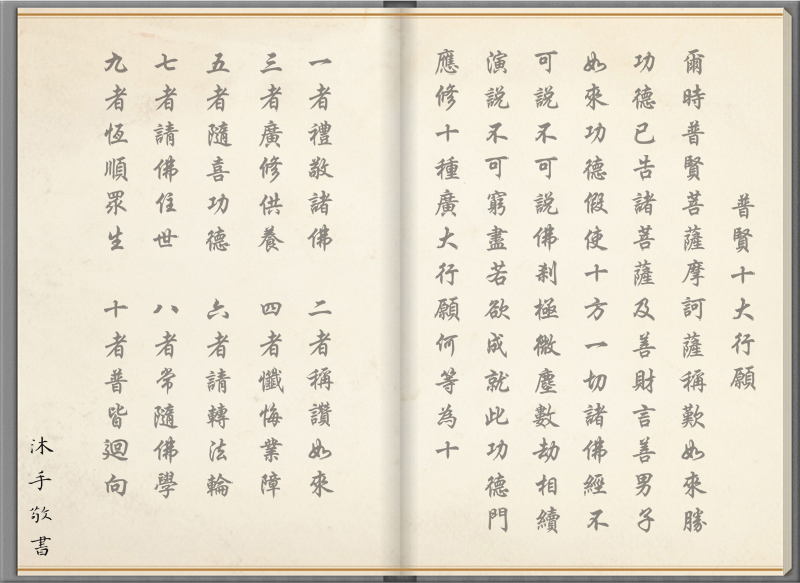 普賢十大行願
爾時普賢菩薩摩訶薩稱歎如來勝
功德已告諸菩薩及善財言善男子
如來功德假使十方一切諸佛經不
可說不可說佛剎極微塵數劫相續
演說不可窮盡若欲成就此功德門
應修十種廣大行願何等為十
一者禮敬諸佛 二者稱讚如來
三者廣修供養 四者懺悔業障
五者隨喜功德 六者請轉法輪
七者請佛住世 八者常隨佛學
九者恆順眾生 十者普皆迴向
沐手敬書